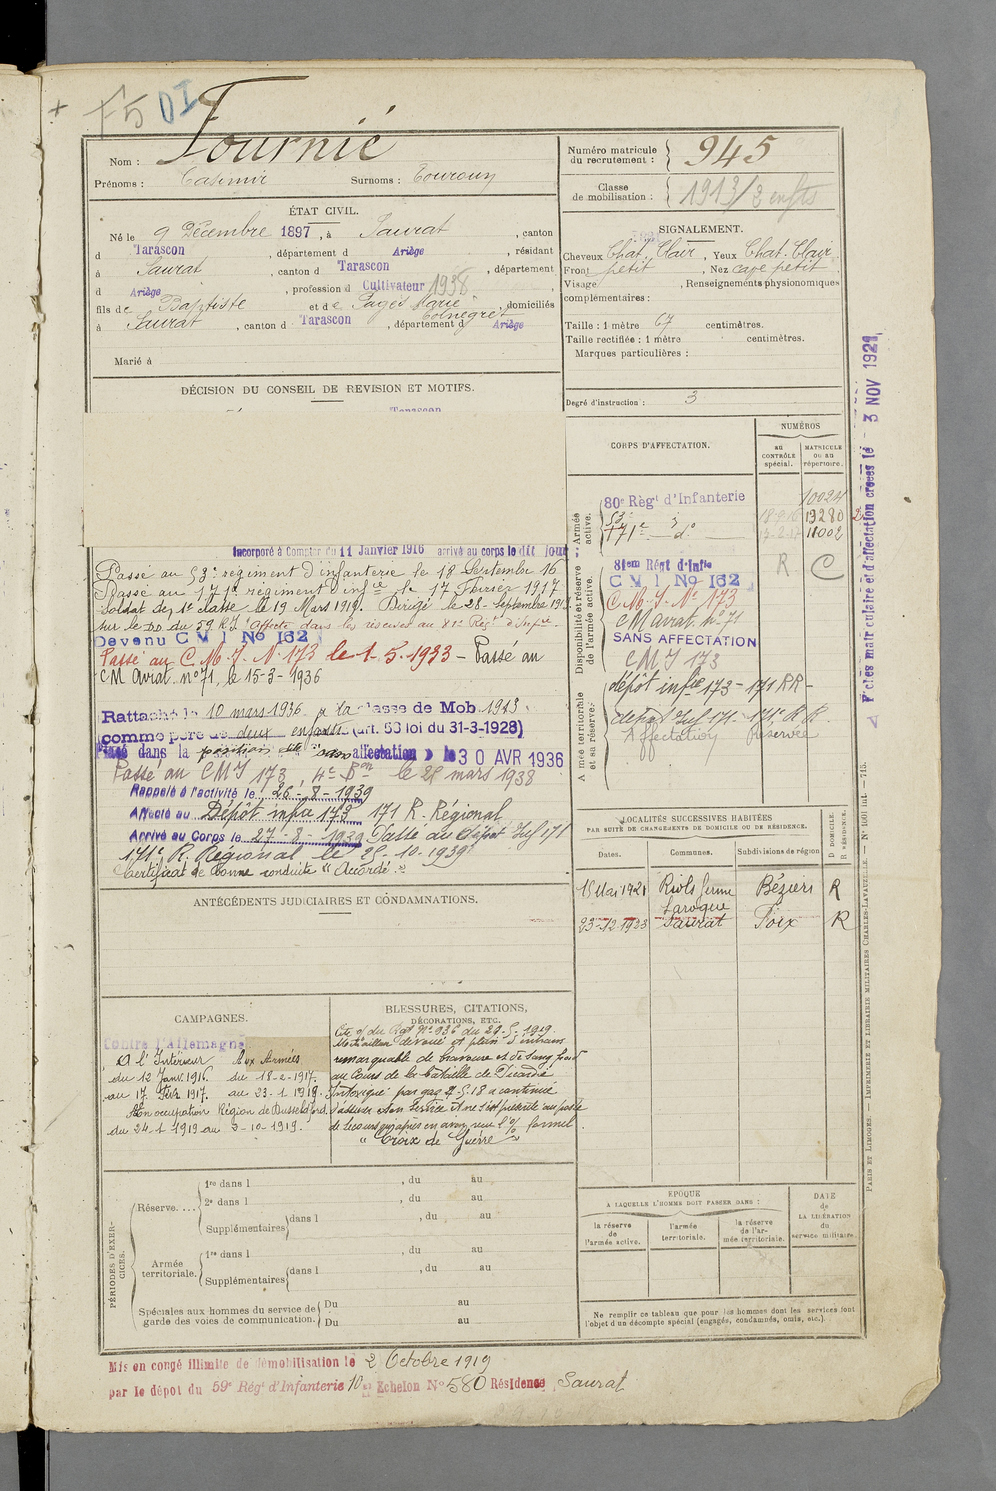 F5 DI
Nom : Fournié
Prénoms : Casimir Surnoms :
Numéro matricule du recrutement : 945
Classe de mobilisation : 1913/2 enfts
ÉTAT CIVIL.
Né le 9 Décembre 1897, à Saurat, canton
d Tarascon, département d Ariège, résidant
à Saurat, canton d Tarascon, département
d Ariège, profession d Cultivateur 1938
fils de Baptiste et de Pagès Marie, domiciliés
à Saurat, canton d Tarascon, département d Ariège
Marié à
SIGNALEMENT.
Cheveux Chat. Clair, Yeux Chat. Clair
Front petit, Nez cave petit
Visage , Renseignements physionomiques
complémentaires :
Taille : 1 mètre 67 centimètres.
Taille rectifiée : 1 mètre centimètres.
Marques particulières :
Degré d'instruction : 3
DÉCISION DU CONSEIL DE REVISION ET MOTIFS.
Tarascon
Incorporé à Compter du 11 Janvier 1916 arrivé au corps le dit jour ;
Passé au 53e régiment d'infanterie le 18 Septembre 16
Passé au 171e régiment d'infie le 17 Février 1917
soldat de 1e classe le 19 Mars 1919. Dirigé le 28 Septembre 1919
sur le DD du 59 RI Affecté dans les réserves au 81e Régt d'Infie
Devenu C M I No 162
Passé au C.M.I. No 173 le 1.5.1933 - Passé au
CM Aviat. no 71, le 15-3-1936
Rattaché le 10 mars 1936 à la classe de Mob. 1913
comme père de deux enfants (art. 58 loi du 31-3-1928)
Placé dans la position de "sans affectation" le 30 AVR 1936
Passé au CMI 173, 4e Bon le 25 mars 1938
Rappelé à l'activité le 26-8-1939
Affecté au Dépôt infie 173 171 R. Régional
Arrivé au Corps le 27-8-1939 Passé au dépôt Inf 171
171e R. Régional le 25-10-1939
Certificat de bonne conduite "Accordé"
CORPS D'AFFECTATION.
NUMÉROS
AU CONTRÔLE spécial.
MATRICULE ou au répertoire.
Armée active.
80e Régt d'Infanterie 10024
53e do 18-9-16 13280
171e do 11002
Disponibilité et réserve de l'armée active.
81em Régt d'Infie R C
C M I No 162
C.M.I. No 173
CM Aviat. no 71
SANS AFFECTATION
CMI 173
dépôt infie 173 - 171 RR -
Armée territoriale et sa réserve.
dépôt Inf 171 - 171e R.R.
Affectation Réservée
Fiches matriculaire et d'affectation créées le 3 NOV 1921
LOCALITÉS SUCCESSIVES HABITÉES
PAR SUITE DE CHANGEMENTS DE DOMICILE OU DE RÉSIDENCE.
Dates. Communes. Subdivisions de région
D DOMICILE. R RÉSIDENCE.
15 Mai 1921 Riols ferme Laroque Béziers R
23-12-1933 Saurat Foix R
ANTÉCÉDENTS JUDICIAIRES ET CONDAMNATIONS.
CAMPAGNES.
Contre l'Allemagne
A l'Intérieur Aux Armées
du 12 Janv. 1916 du 18-2-1917
au 17 Févr. 1917. au 23-1-1919.
En occupation Région de Dusseldorf
du 24-1-1919 au 2-10-1919.
BLESSURES, CITATIONS,
DÉCORATIONS, ETC.
Cité o/ du Rgt No 936 du 29.5.1919.
Mitrailleur dévoué et plein d'entrain
remarquable de bravoure et de sang froid
au cours de la bataille de Picardie
Intoxiqué par gaz 4-5-18 a continué
d'assurer son service et ne s'est présenté au poste
de secours qu'après en avoir reçu l'o/ formel
"Croix de Guerre"
PÉRIODES D'EXERCICES.
Réserve....
1re dans l , du au
2e dans l , du au
Supplémentaires dans l , du au
Armée territoriale.
1re dans l , du au
Supplémentaires dans l , du au
Spéciales aux hommes du service de garde des voies de communication.
Du au
Du au
ÉPOQUE
A LAQUELLE L'HOMME DOIT PASSER DANS :
la réserve de l'armée active.
l'armée territoriale.
la réserve de l'armée territoriale.
DATE de LA LIBÉRATION du service militaire.
Ne remplir ce tableau que pour les hommes dont les services font
l'objet d'un décompte spécial (engagés, condamnés, omis, etc.).
PARIS ET LIMOGES. — IMPRIMERIE ET LIBRAIRIE MILITAIRES CHARLES-LAVAUZELLE. — No 1001 int. — 715.
Mis en congé illimité de démobilisation le 2 Octobre 1919
par le dépôt du 59e Régt d'Infanterie 10e Echelon No 580 Résidence Saurat